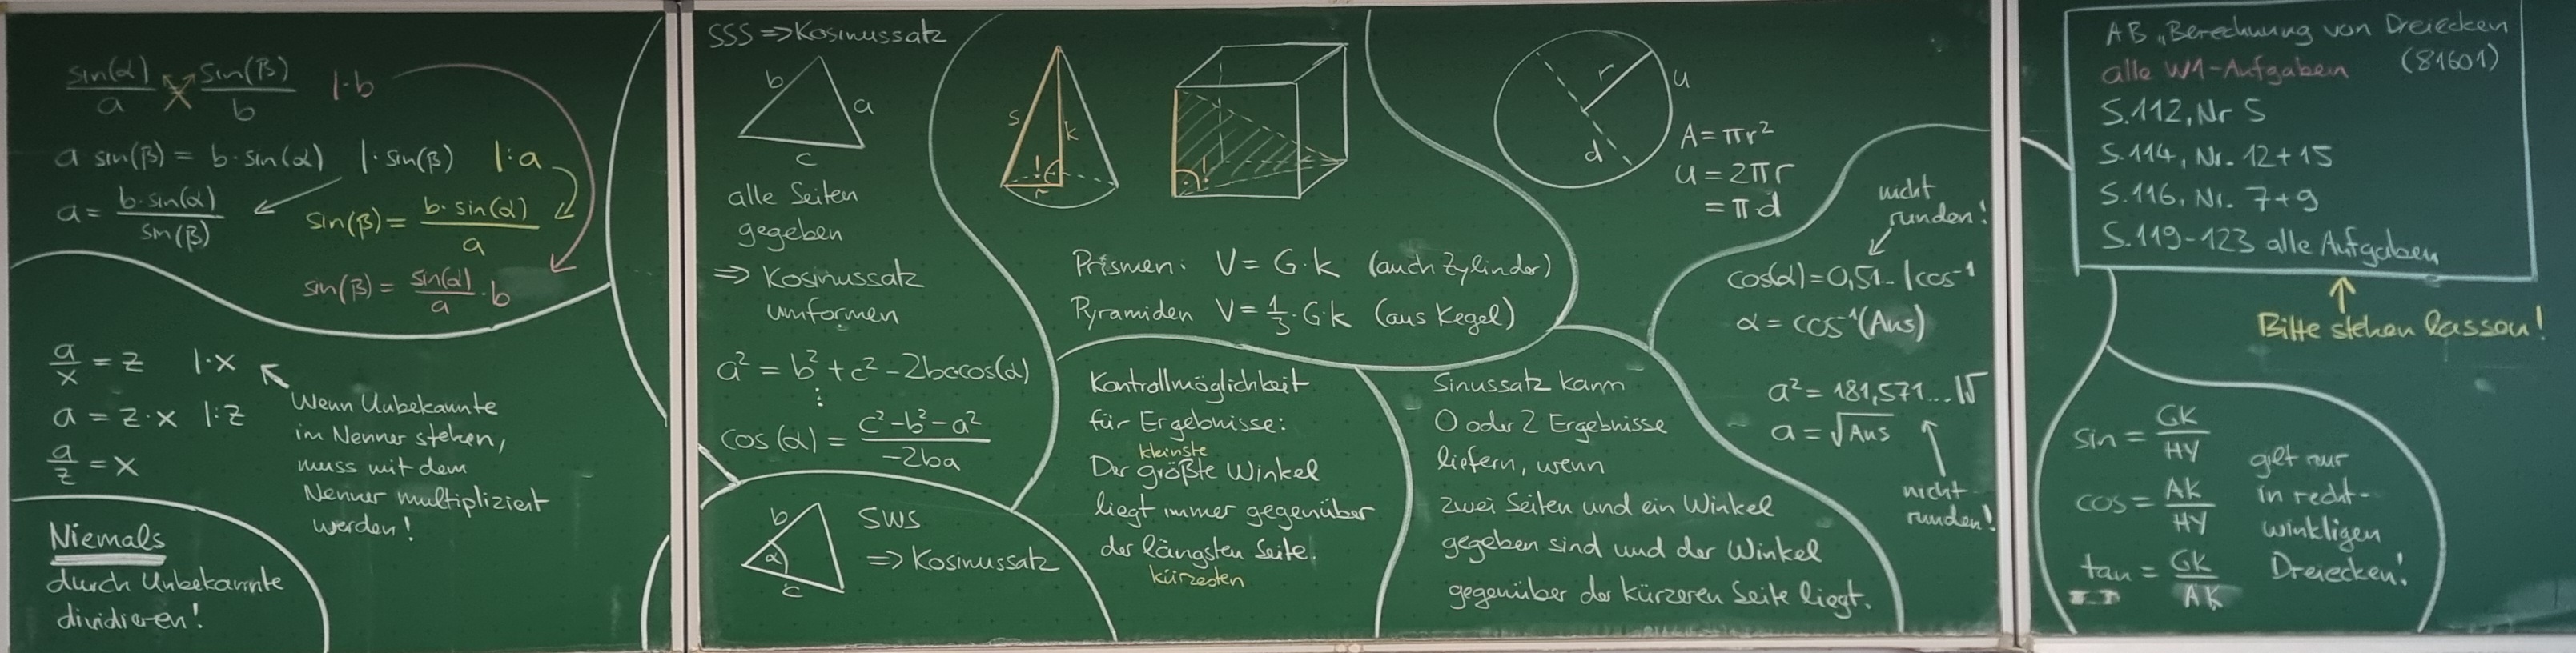 sin(α)/a = sin(β)/b |·b
a sin(β) = b·sin(α) |·sin(β) |:a
a = b·sin(α)/sin(β)
sin(β) = b·sin(α)/a
sin(β) = sin(α)/a · b
a/x = z |·x
a = z·x |:z
a/z = x
Wenn Unbekannte
im Nenner stehen,
muss mit dem
Nenner multipliziert
werden!
Niemals
durch Unbekannte
dividieren!
SSS ⇒ Kosinussatz
b
a
c
alle Seiten
gegeben
⇒ Kosinussatz
umformen
a² = b² + c² - 2bc·cos(α)
⋮
cos(α) = c²-b²-a²/-2ba
b
α
c
SWS
⇒ Kosinussatz
s
k
!
r
!
Prismen: V = G·k (auch Zylinder)
Pyramiden V = 1/3·G·k (aus Kegel)
r
u
d
A = πr²
u = 2πr
= π·d
Kontrollmöglichkeit
für Ergebnisse:
kleinste
Der größte Winkel
liegt immer gegenüber
der längsten Seite.
kürzesten
Sinussatz kann
0 oder 2 Ergebnisse
liefern, wenn
zwei Seiten und ein Winkel
gegeben sind und der Winkel
gegenüber der kürzeren Seite liegt.
nicht
runden!
cos(α) = 0,51... |cos⁻¹
α = cos⁻¹(Ans)
a² = 181,571... |√
a = √Ans
nicht
runden!
AB „Berechnung von Dreiecken
alle W1-Aufgaben (81601)
S.112, Nr 5
S.114, Nr. 12+15
S.116, Nr. 7+9
S.119-123 alle Aufgaben
Bitte stehen lassen!
sin = GK/HY
cos = AK/HY
tan = GK/AK
gilt nur
in recht-
winkligen
Dreiecken!